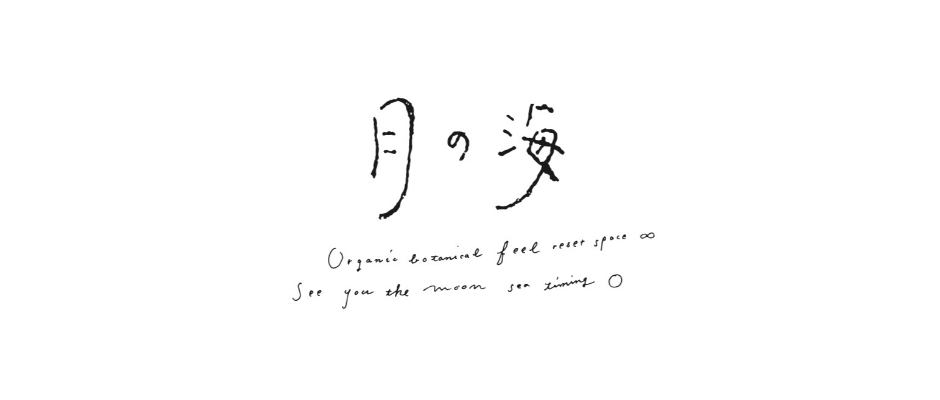 月の海
Organic botanical feel reset space ∞
See you the moon sea timing ○